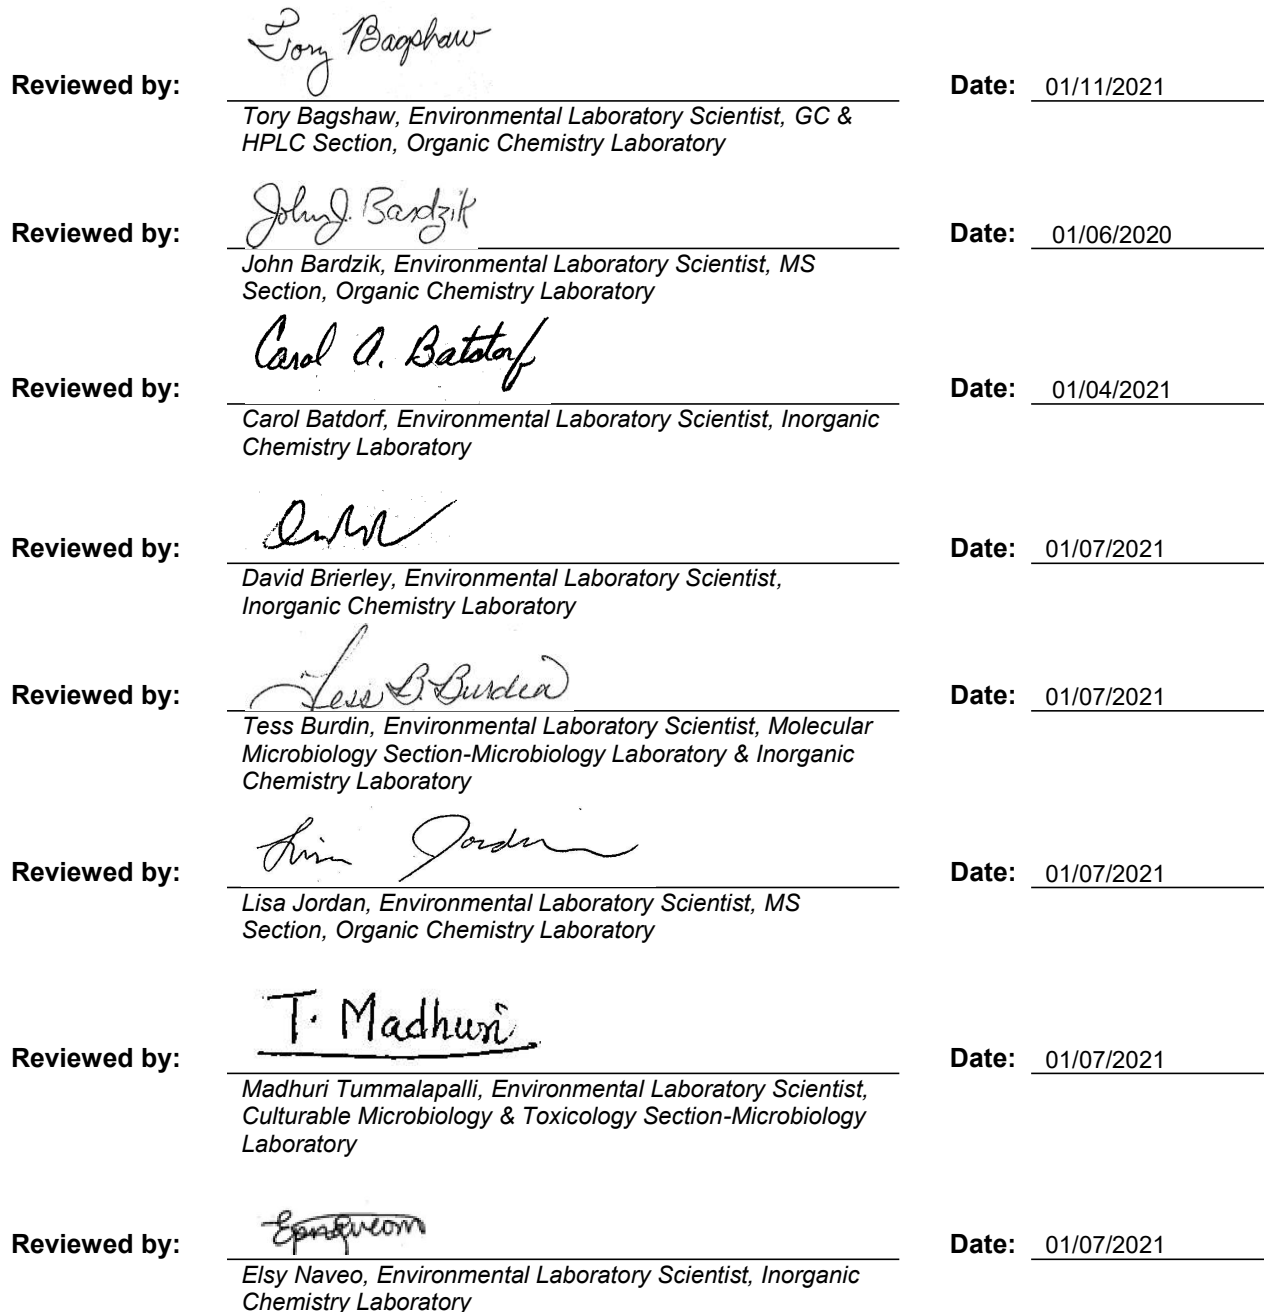 Tory Bagshaw
Reviewed by: Date: 01/11/2021
Tory Bagshaw, Environmental Laboratory Scientist, GC &
HPLC Section, Organic Chemistry Laboratory
John J. Bardzik
Reviewed by: Date: 01/06/2020
John Bardzik, Environmental Laboratory Scientist, MS
Section, Organic Chemistry Laboratory
Carol A. Batdorf
Reviewed by: Date: 01/04/2021
Carol Batdorf, Environmental Laboratory Scientist, Inorganic
Chemistry Laboratory
Reviewed by: Date: 01/07/2021
David Brierley, Environmental Laboratory Scientist,
Inorganic Chemistry Laboratory
Tess B. Burdin
Reviewed by: Date: 01/07/2021
Tess Burdin, Environmental Laboratory Scientist, Molecular
Microbiology Section-Microbiology Laboratory & Inorganic
Chemistry Laboratory
Lisa Jordan
Reviewed by: Date: 01/07/2021
Lisa Jordan, Environmental Laboratory Scientist, MS
Section, Organic Chemistry Laboratory
T. Madhuri
Reviewed by: Date: 01/07/2021
Madhuri Tummalapalli, Environmental Laboratory Scientist,
Culturable Microbiology & Toxicology Section-Microbiology
Laboratory
Reviewed by: Date: 01/07/2021
Elsy Naveo, Environmental Laboratory Scientist, Inorganic
Chemistry Laboratory